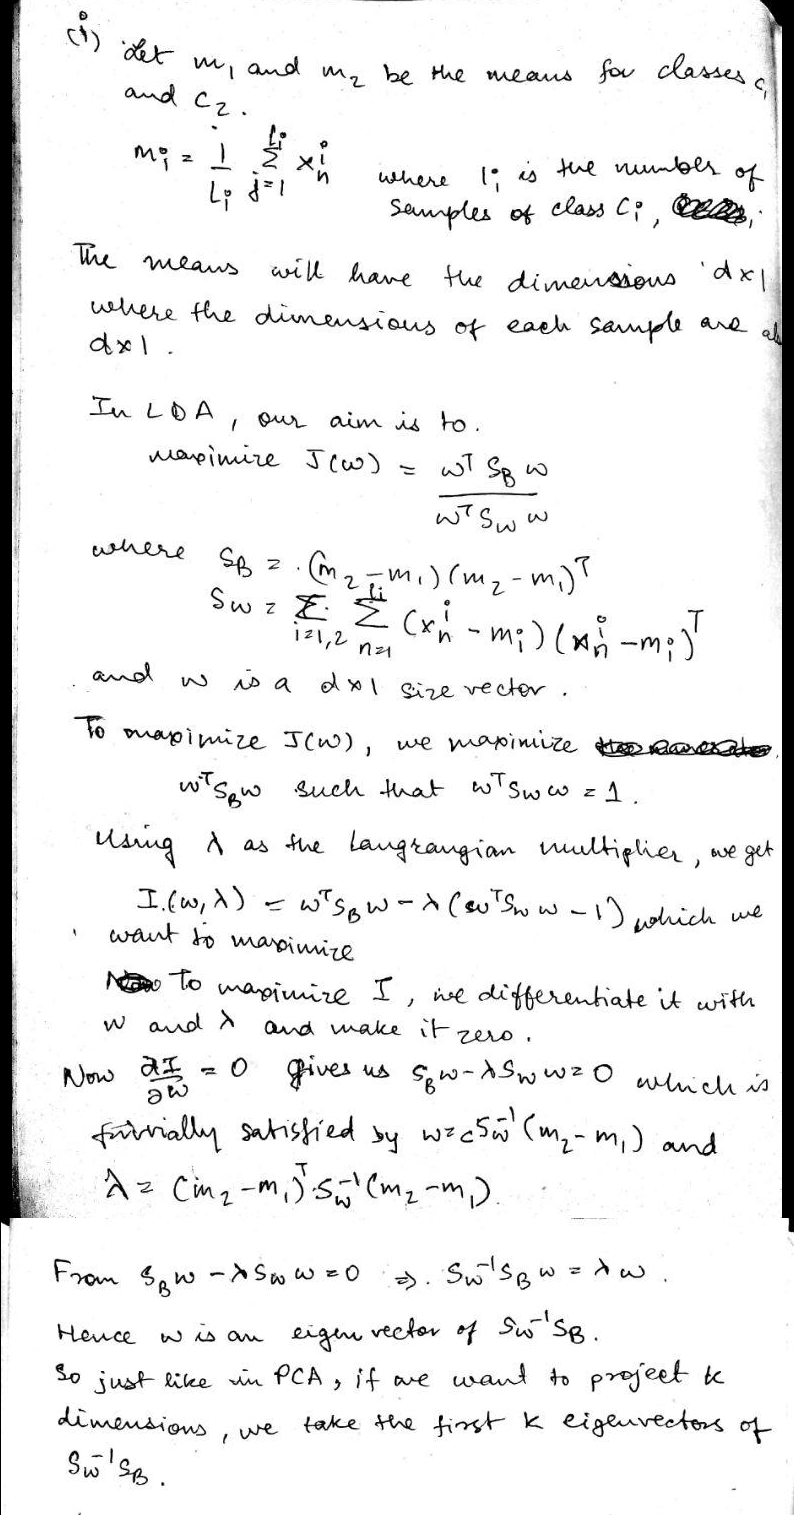 (i) Let m₁ and m₂ be the means for classes c₁
and C₂.
mᵢ = 1/Lᵢ Σ_{j=1}^{Lᵢ} xₙⁱ where lᵢ is the number of
samples of class Cᵢ,
The means will have the dimensions 'd×1
where the dimensions of each sample are al
d×1.
In LDA, our aim is to.
maximize J(w) = wᵀ S_B w / wᵀ S_W w
where S_B = (m₂ - m₁)(m₂ - m₁)ᵀ
S_W = Σ_{i=1,2} Σ_{n=1}^{Lᵢ} (xₙⁱ - mᵢ)(xₙⁱ - mᵢ)ᵀ
and w is a d×1 size vector.
To maximize J(w), we maximize
wᵀS_Bw such that wᵀS_W w = 1.
Using λ as the Langrangian multiplier, we get
I.(w,λ) = wᵀS_B w - λ(wᵀS_W w - 1) which we
want to maximize
To maximize I, we differentiate it with
w and λ and make it zero.
Now ∂I/∂w = 0 gives us S_B w - λS_W w = 0 which is
trivially satisfied by w = cS_W⁻¹(m₂ - m₁) and
λ = (m₂ - m₁)ᵀ.S_W⁻¹(m₂ - m₁).
From S_B w - λS_W w = 0 ⇒. S_W⁻¹S_B w = λw.
Hence w is an eigen vector of S_W⁻¹S_B.
So just like in PCA, if we want to project k
dimensions, we take the first k eigenvectors of
S_W⁻¹S_B.